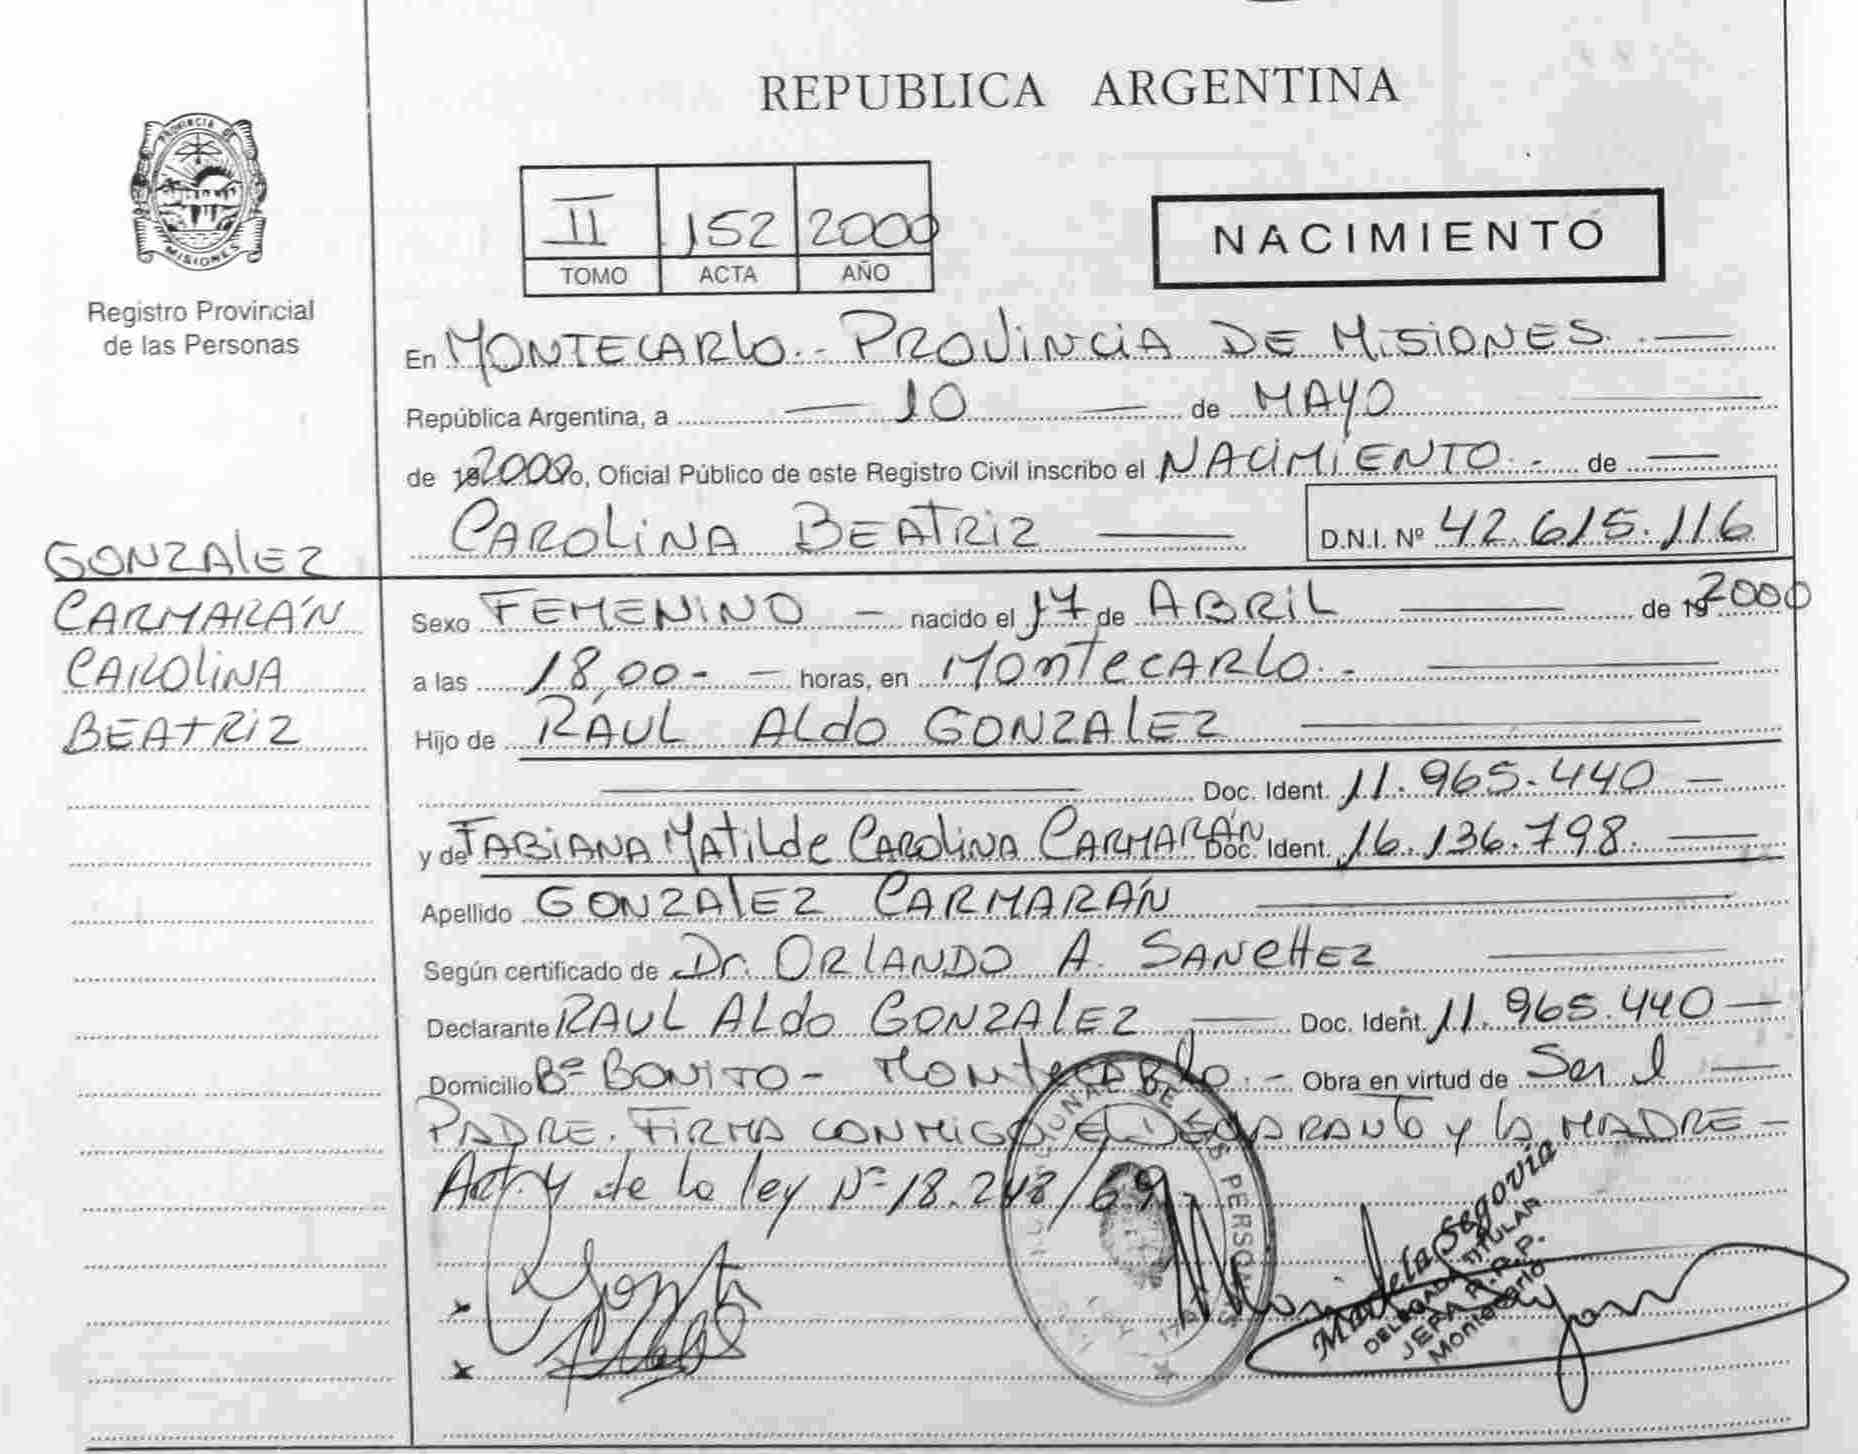 REPUBLICA ARGENTINA
PROVINCIA DE
MISIONES
Registro Provincial
de las Personas
II 152 2000
TOMO ACTA AÑO
NACIMIENTO
En MONTECARlO.- PROVINCIA DE MISIONES.-
República Argentina, a — 10 — de MAYO
de 192000, Oficial Público de este Registro Civil inscribo el NACIMIENTO.- de —
CAROLINA BEATRIZ — D.N.I. Nº 42.615.116
GONZALEZ
CARMARÁN
CAROLINA
BEATRIZ
Sexo FEMENINO — nacido el 17 de ABRIL — de 19 2000
a las 18,00- — horas, en MONTECARLO.-
Hijo de RAUL ALdO GONZALEZ —
Doc. Ident. 11.965.440 —
y de FABIANA MATILde CAROLINA CARMARÁN Doc. Ident. 16.136.798. —
Apellido GONZALEZ CARMARÁN —
Según certificado de Dr. ORLANDO A. SANCHEZ —
Declarante RAUL ALdO GONZALEZ — Doc. Ident. 11.965.440 —
Domicilio Bº BONITO - MONTECARLO.- Obra en virtud de Ser el —
PADRE. FIRMA CONMIGO El DECLARANTE y lA MADRE -
Art. 4 de la ley Nº 18.248/69
DE LAS PERSONAS
Mandela Segovia
DELEGADA TITULAR
JEFA R.P.P.
Montecarlo